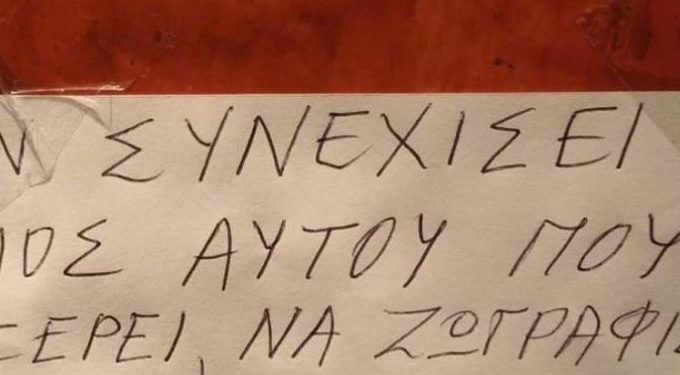 Ν ΣΥΝΕΧΙΣΕΙ
ΙΟΣ ΑΥΤΟΥ ΠΟΥ
ΞΕΡΕΙ, ΝΑ ΖΩΓΡΑΦΙΣ